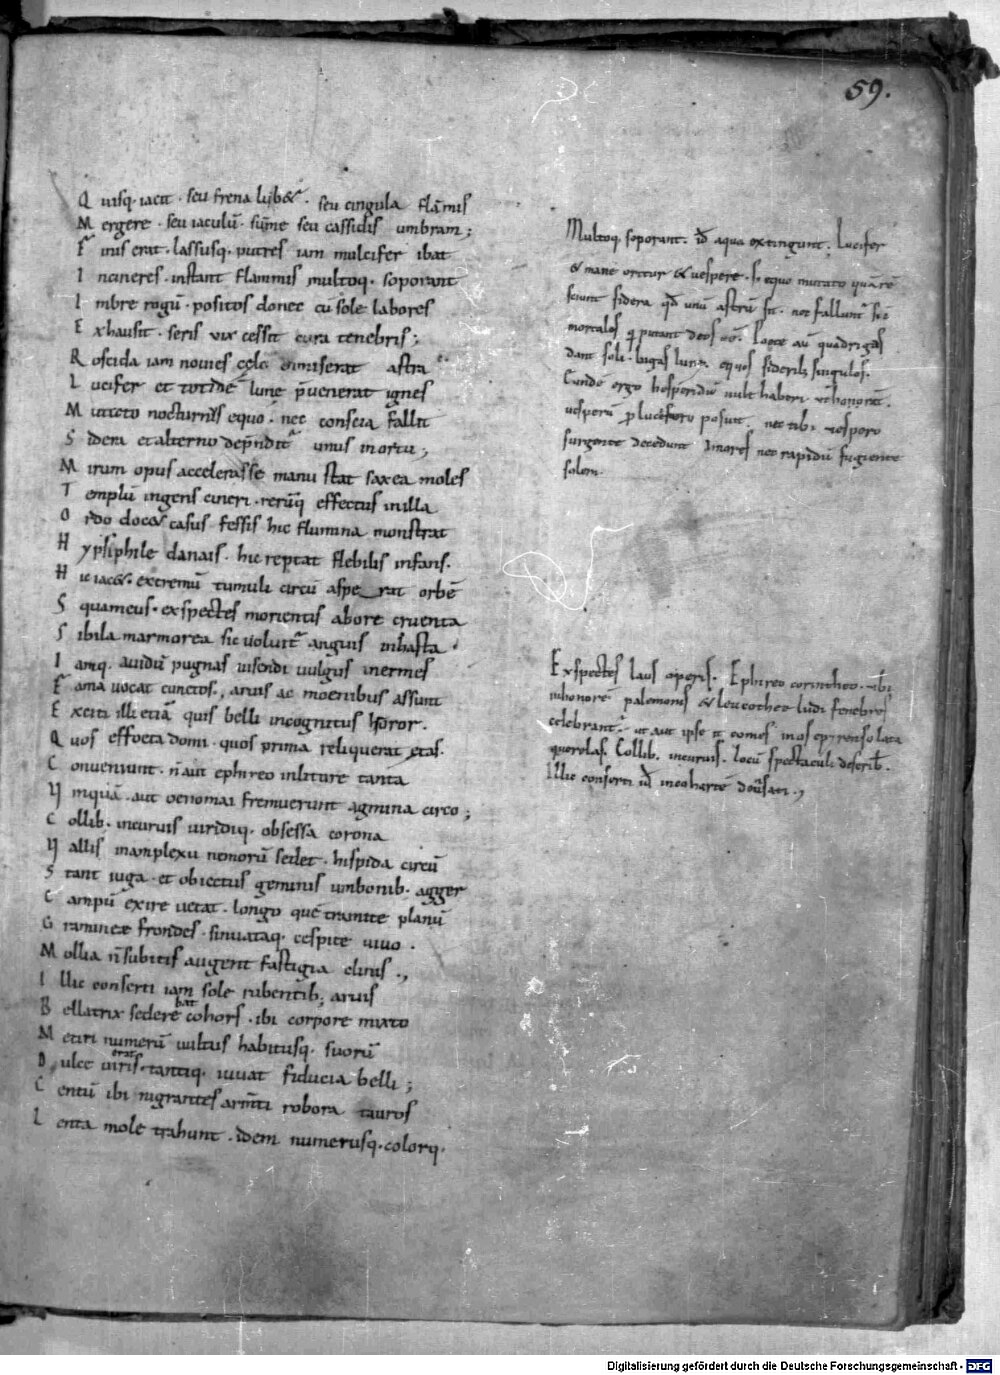 59.
Q uisq. iacit . seu frena lib& . seu cingula flāmis
M ergere . seu iaculū . sūme seu cassidis umbram ;
F inis erat . lassusq. putres iam mulcifer ibat
I n cineres . instant flammis multoq. soporant
I mbre rogū . positos donec cū sole labores
E xhausit . seris vix cessit cura tenebris ;
R oscida iam novies celo dimiserat astra
L ucifer et totidē lune p̄uenerat ignes
M utato nocturnis equo . nec conscia fallit
S idera et alterno dep̄nditur unus in ortu ;
M irum opus accelerasse manu stat saxea moles
T emplū ingens cineri . rerūq effectus in illa
O rdo doc& casus fessis hic flumina monstrat
H ypsiphile danais . hic reptat flebilis infans .
H ic iac& . extremū tumuli circū asperat orbē
S quameus . exspectes morientis ab ore cruenta
S ibila marmorea sic volvitur anguis in hasta
I amq. avidū pugnas visendi vulgus inermes
F ama vocat cunctos ; arvis ac moenibus assunt
E xciti illi etiā quis belli incognitus horror .
Q uos effoeta domi . quos prima reliquerat etas .
C onveniunt . n̄ aut ephireo in litore tanta
U mquā . aut oenomai fremuerunt agmina circo ;
C ollib. incurvis viridiq. obsessa corona
U allis in amplexu nemorū sedet . hispida circū
S tant iuga . et obiectus geminis umbonib. agger
C ampū exire vetat . longo quē tramite planū
G ramineæ frondes . sinuataq. cespite vivo .
M ollia n̄ subitis augent fastigia clivis .,
I llic conserti iam sole rubentib; arvis
B ellatrix sedere bat cohors . ibi corpore mixto
M etiri numerū vultus habitusq. suorū
D ulce viris erat . tantiq. iuvat fiducia belli ;
C entū ibi nigrantes armti robora tauros
L enta mole trahunt . idem numerusq. colorq.
Multoq. soporant . id aqua extingunt . Lucifer
& mane oritur & vespere . s; equo mutato quārē
sciunt sidera qd unū astrū sit . nec fallunt sic
mortales q putant deos eē . Poete aū quadrigas
dant soli . bigas lunæ . equos siderib; singulos .
Cunde ergo hesperidū vult haberi
vesperū p lucifero posuit . nec tibi vespero
surgente decedunt amores nec rapidū fugiente
solem .
Exspectes laus operis . Ephireo corintheo . ubi
in honorē palemonis & leucothee ludi funebres
celebrant . ut aut ipse
querolas . Collib. incurvis . locū spectaculi describ.
Illic conserti id